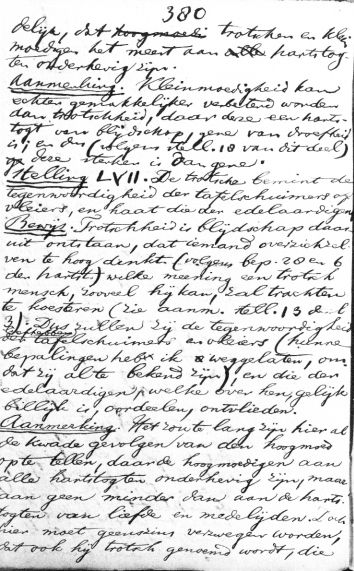 380
delijk, dat hoogmoedi trotschen en klein
moedigen het meest aan alle hartstog
ten onderhevig zijn.
Aanmerking. Kleinmoedigheid kan
echter gemakkelijker verbeterd worden
dan trotschheid, daar deze een harts
togt van blijdschap, gene van droefheid
is; en dus (volgens stell. 18 van dit deel)
deze sterker is dan gene.
Stelling LVII. De trotsche bemint de
tegenwoordigheid der tafelschuimers of
vleiers, en haat die der edelaardigen.
Bewijs. Trotschheid is blijdschap daar
uit ontstaan, dat iemand over zich zel
ven te hoog denkt (volgens bep. 28 en 6
der hartst.) welke meening een trotsch
mensch, zooveel hij kan, zal trachten
te koesteren (zie aanm. stell. 13 d. l
3). Dus zullen zij de tegenwoordigheid
der tafelschuimers en vleiers (hunne
bepalingen heb ik weggelaten, om
dat zij al te bekend zijn), en die der
edelaardigen, welke over hen, gelijk
billijk is, oordeelen, ontvlieden.
Aanmerking. Het zoude te lang zijn hier al
de kwade gevolgen van den hoogmoed
op te tellen, daar de hoogmoedigen aan
alle hartstogten onderhevig zijn, maar
aan geen minder dan aan de harts
togten van liefde en medelijden. Doch
hier moet geenszins verzwegen worden,
dat ook hij trotsch genoemd wordt, die